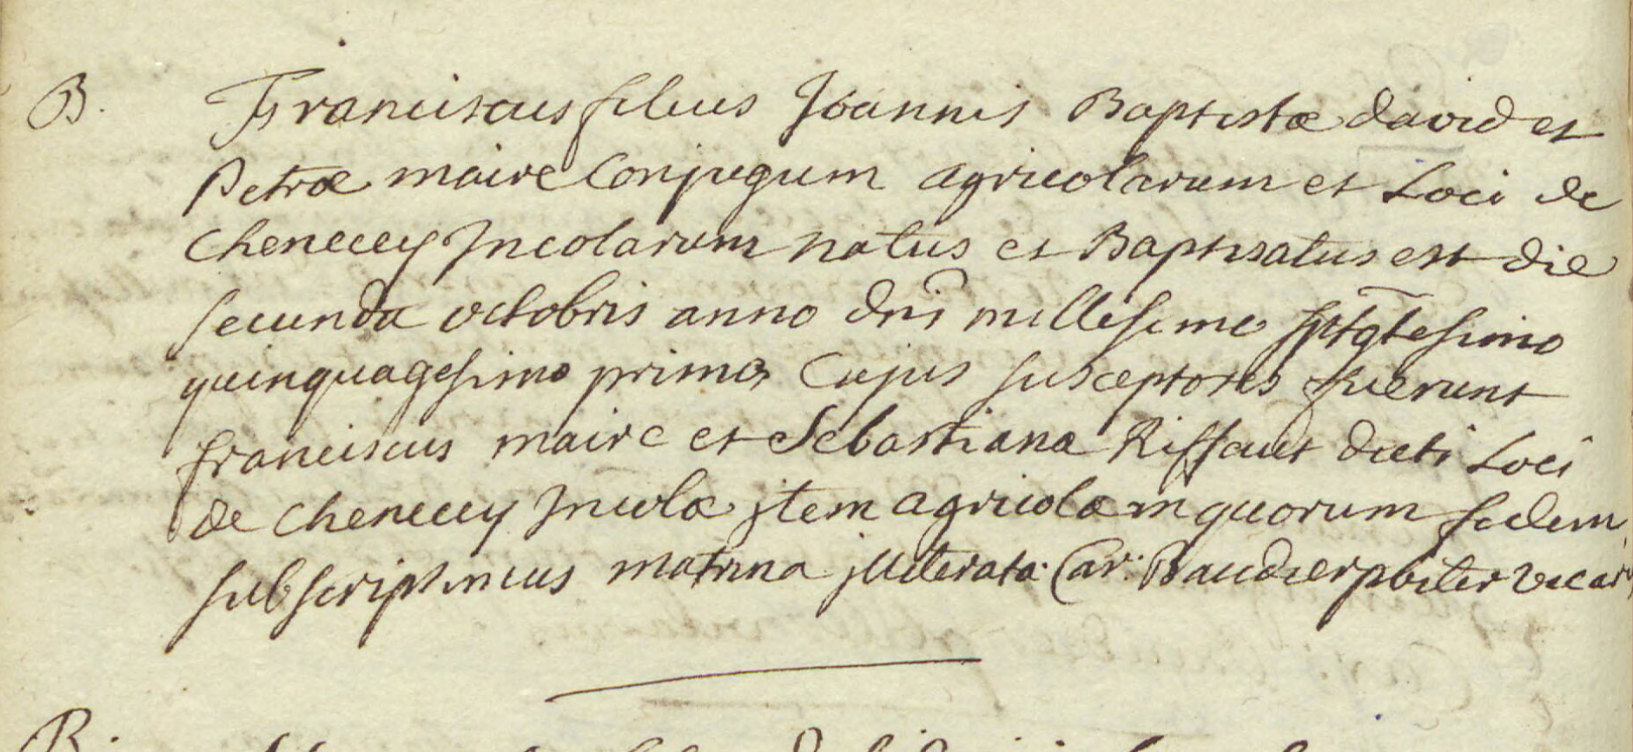 B. Franciscus filius Joannis Baptistæ david et
Petræ maire Conjugum agricolarum et Loci de
Chenecey Incolarum natus et Baptisatus est die
secunda octobris anno dni millesimo sptgtesimo
quinquagesimo primo, Cujus susceptores fuerunt
franciscus maire et Sebastiana Riffaut dicti Loci
de Chenecey Incolæ jtem agricolæ in quorum fidem
subscripsimus matrina jlliterata. Car. Baudier pbiter vicari
B.